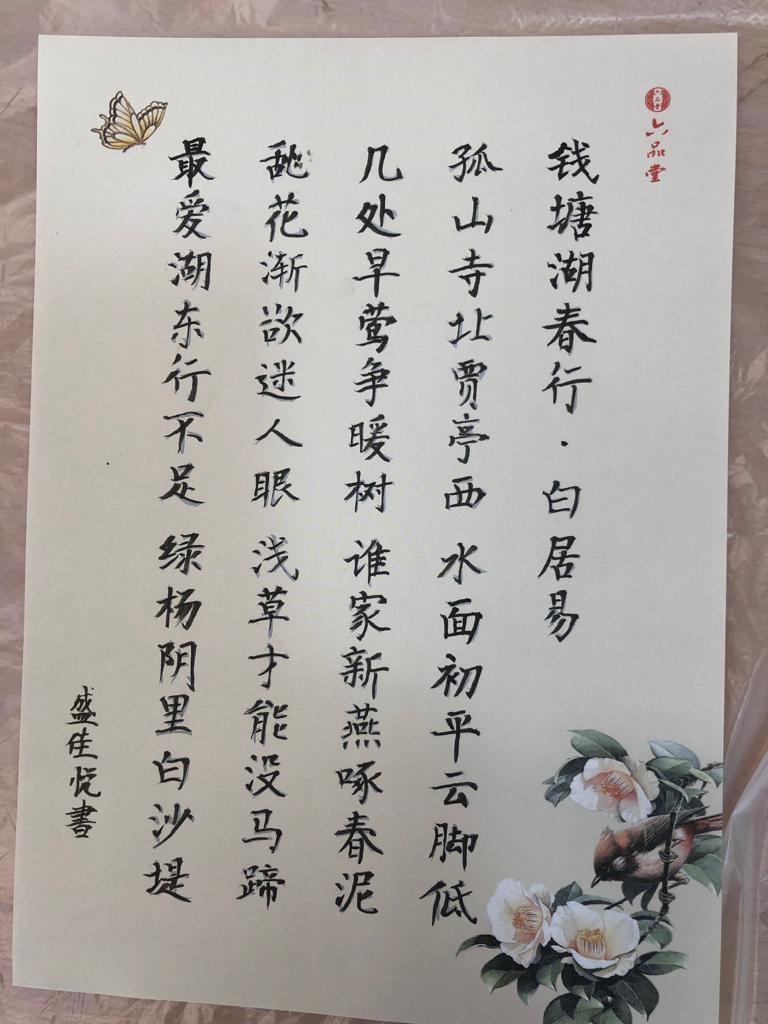 六品堂
钱塘湖春行·白居易
孤山寺北贾亭西 水面初平云脚低
几处早莺争暖树 谁家新燕啄春泥
乱花渐欲迷人眼 浅草才能没马蹄
最爱湖东行不足 绿杨阴里白沙堤
盛佳悦書